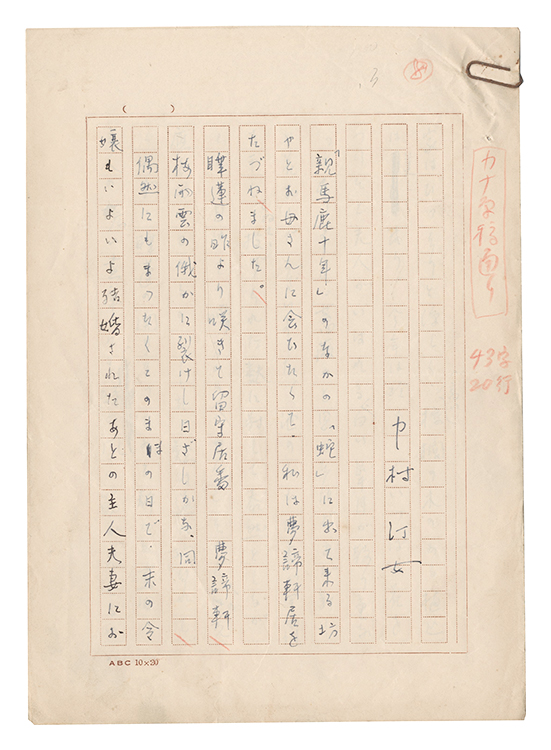 カナ原稿通り
43字
20行
中村汀女
「親馬鹿十年」のなかの「蛇」に出て来る坊
やとお母さんに会ひたくて、私は夢諦軒居を
たづねました。
睡蓮の昨より咲きて留守居番 夢諦軒
梅雨雲の俄かに裂けし日ざしかな、同
偶然にもまつたくこのまゝの日で、末の令
嬢もいよいよ結婚されたあとの主人夫妻にお
ABC 10×20